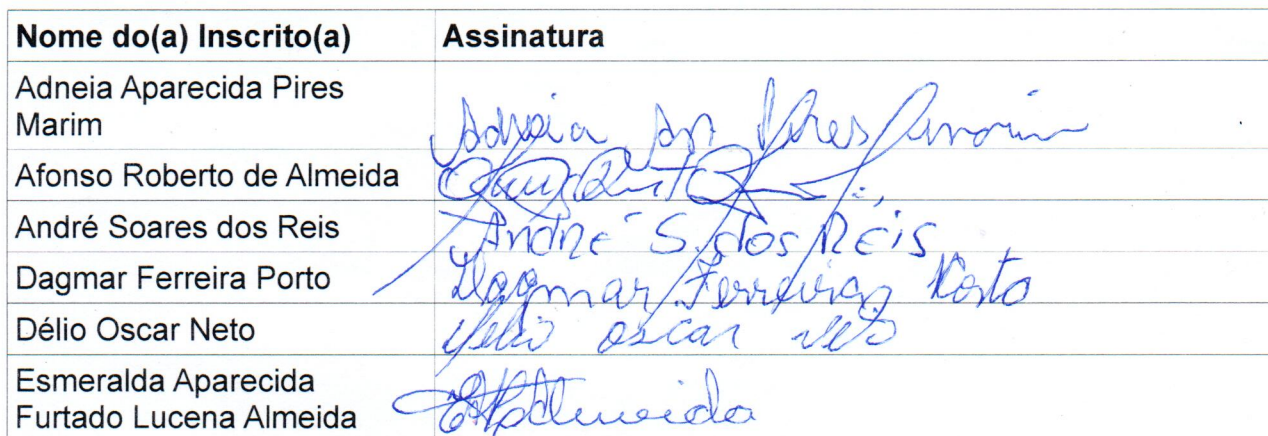 Nome do(a) Inscrito(a) Assinatura
Adneia Aparecida Pires
Marim
Adneia Ap Pires
Afonso Roberto de Almeida
André Soares dos Reis André S. dos Reis
Dagmar Ferreira Porto Dagmar Ferreira Porto
Délio Oscar Neto Delio oscar neto
Esmeralda Aparecida
Furtado Lucena Almeida
Almeida